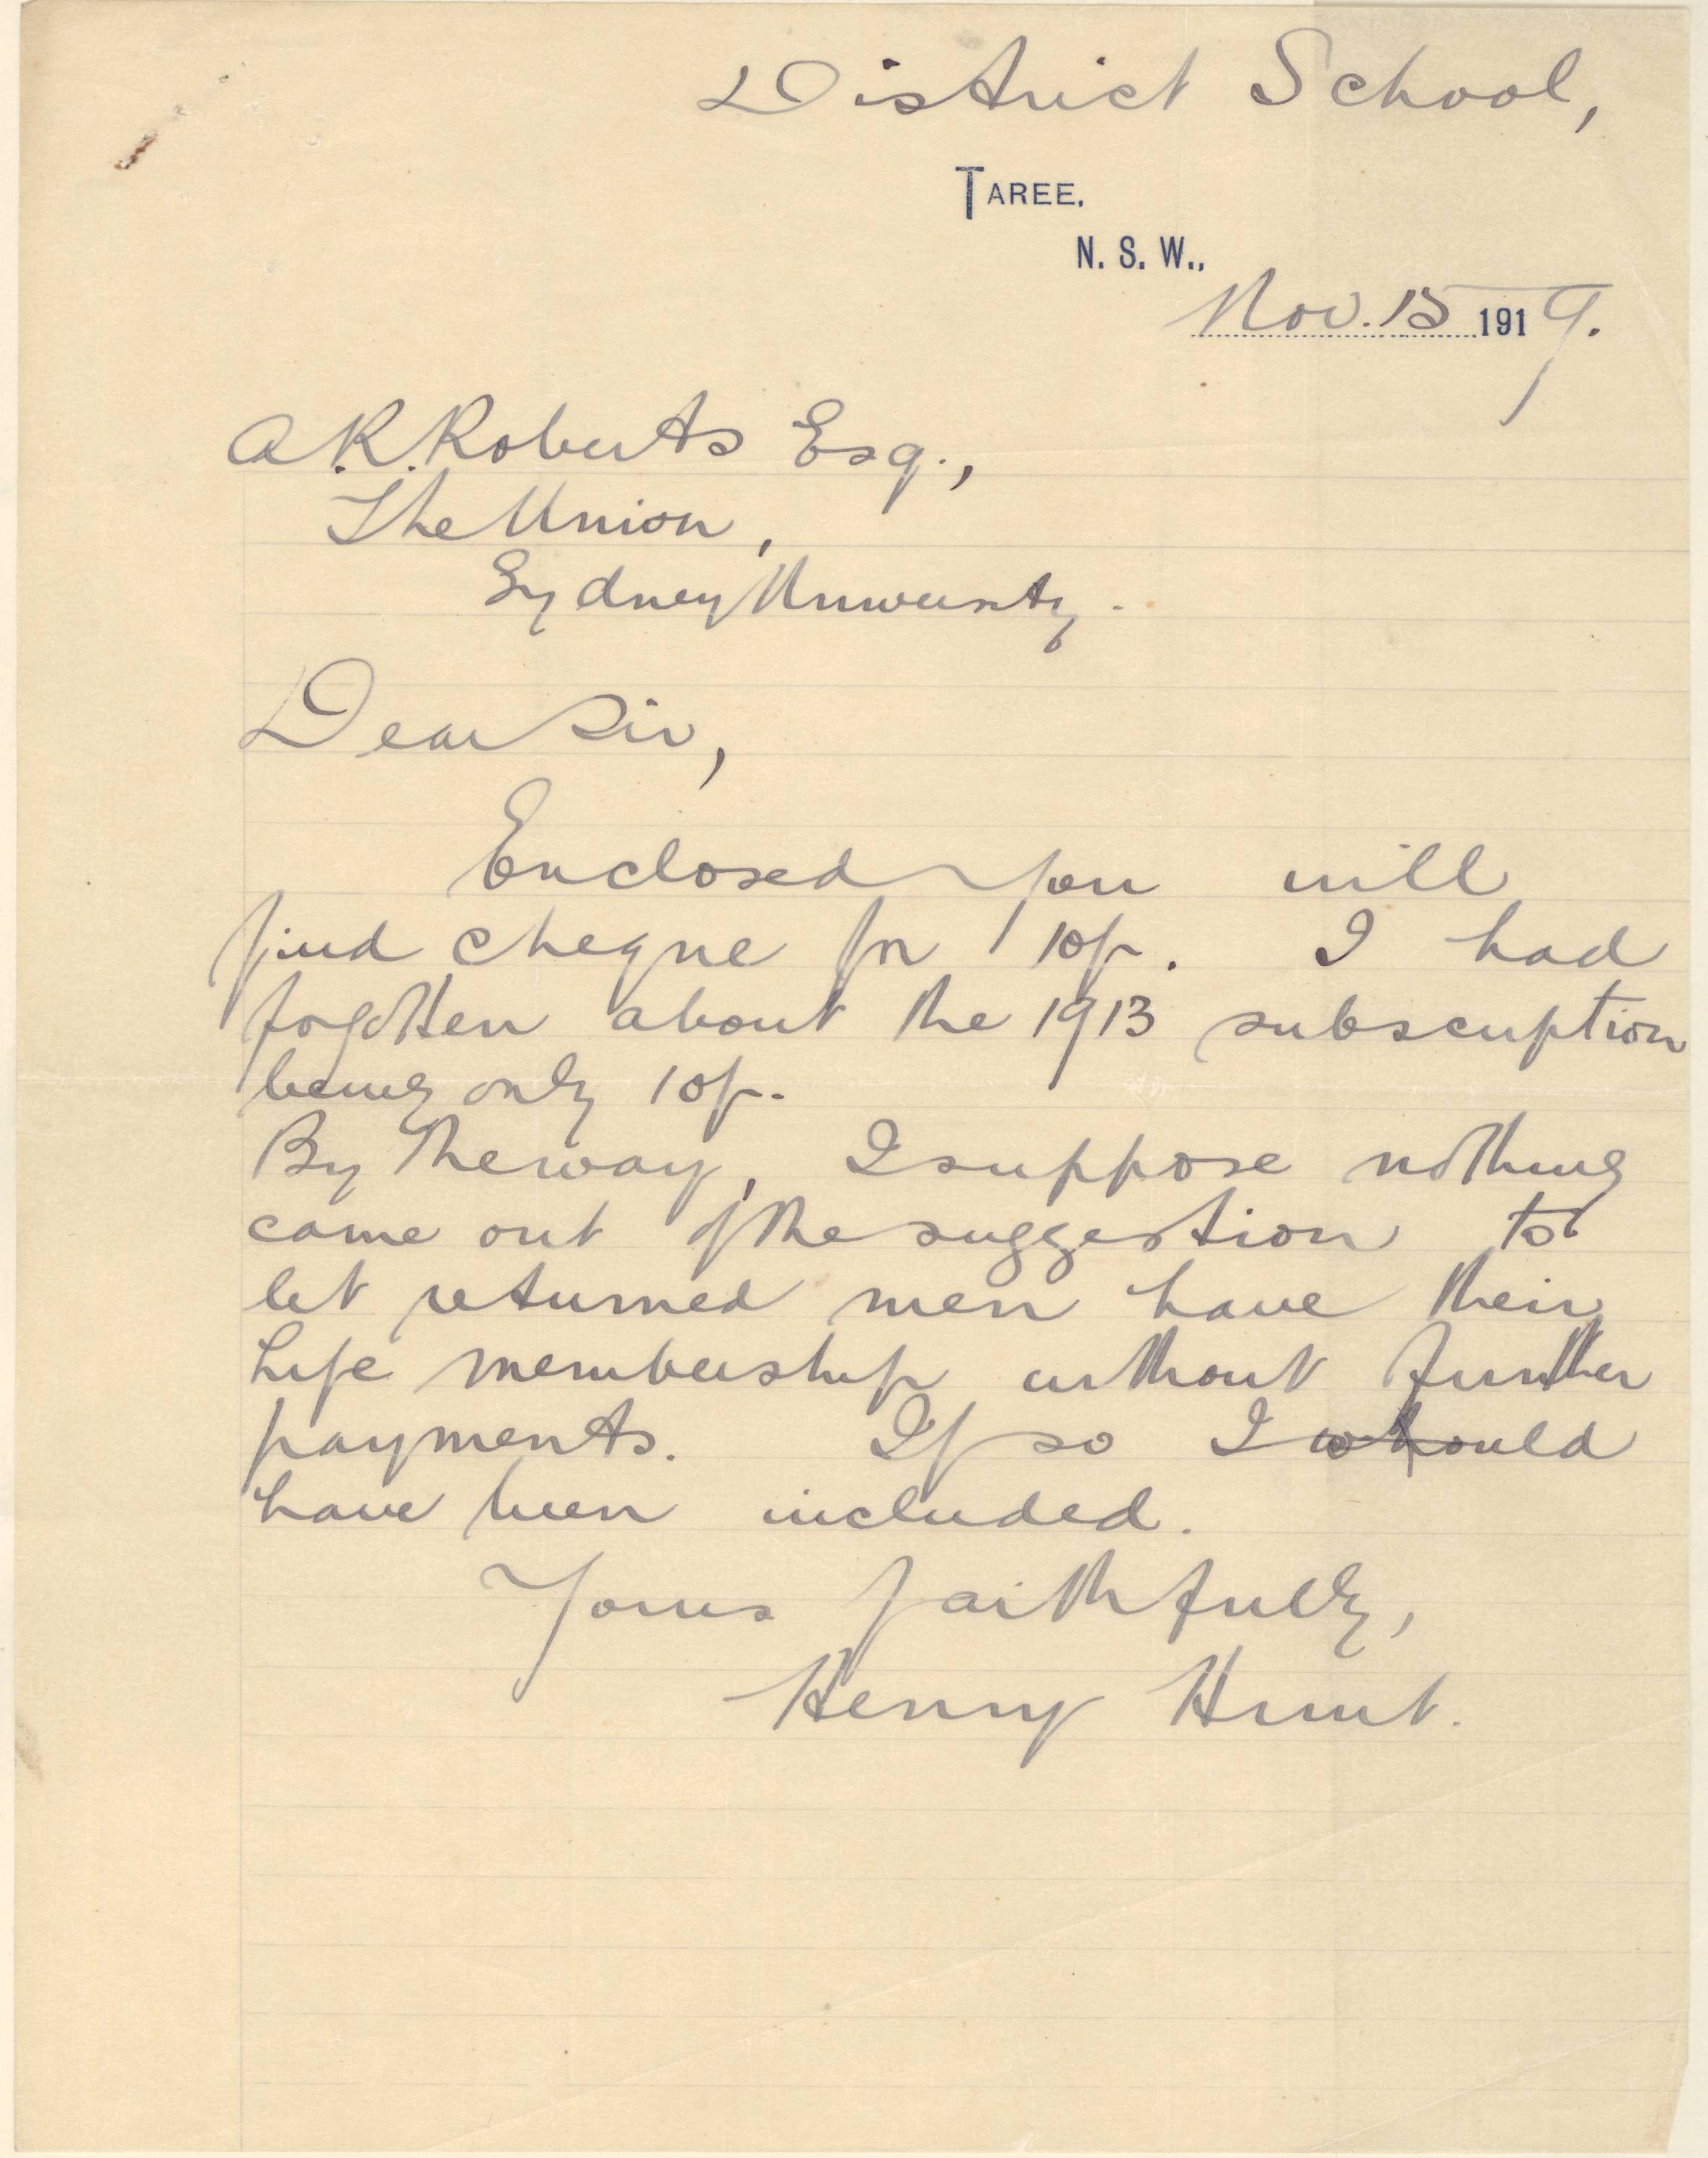 District School,
TAREE.
N. S. W.,
Nov. 15 1919.
A.R. Roberts Esq.,
The Union,
Sydney University.
Dear Sir,
Enclosed you will
find cheque for 10/-. I had
forgotten about the 1913 subscription
being only 10/-.
By the way, I suppose nothing
came out of the suggestion to
let returned men have their
Life membership without further
payments. If so I would
have been included.
Yours faithfully,
Henry Hunt.